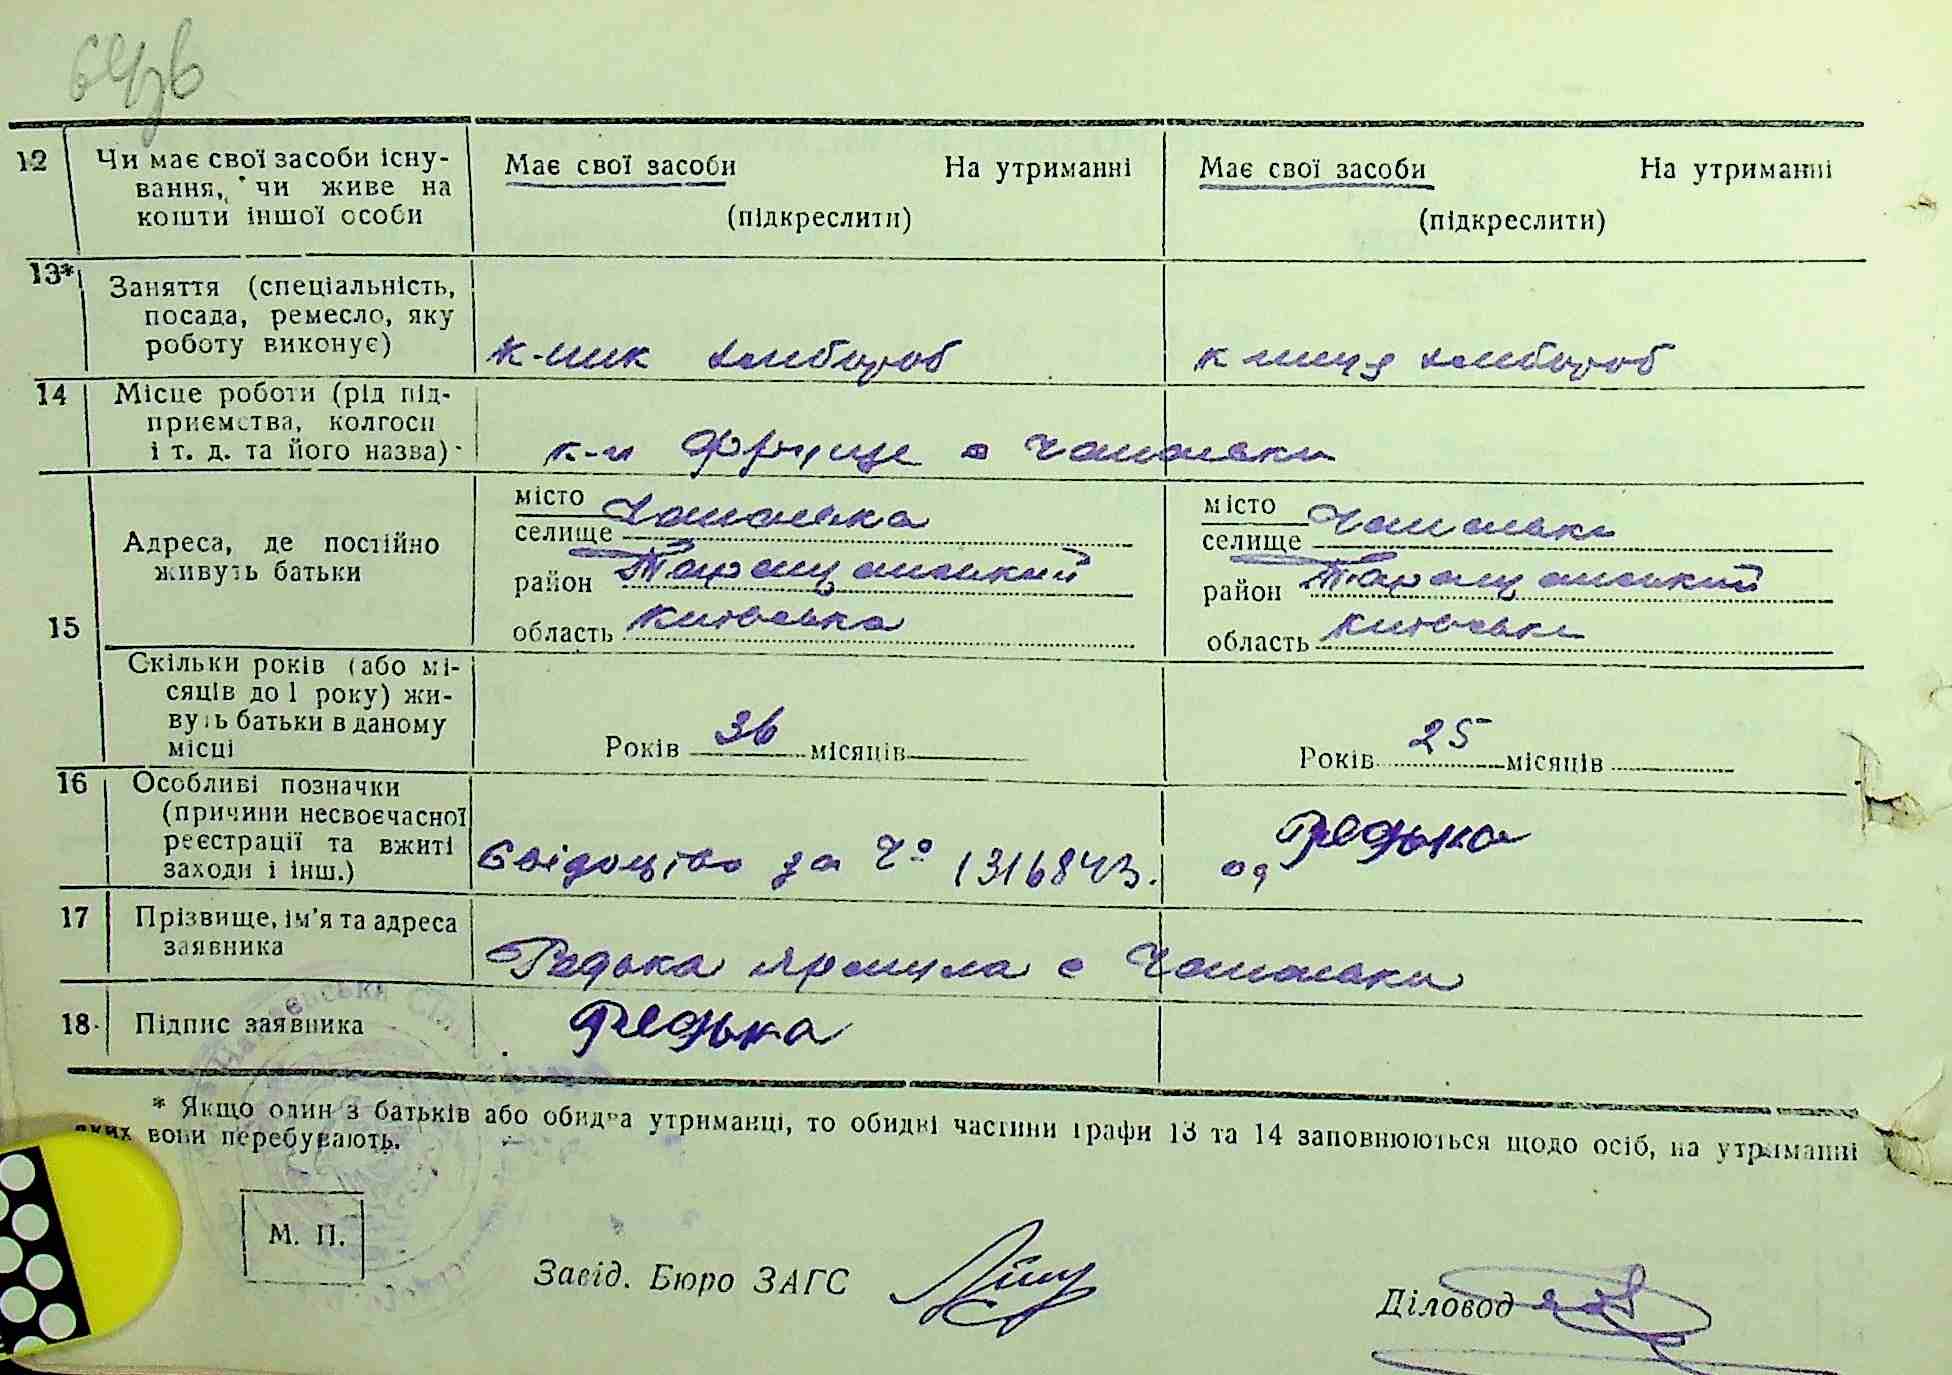 12 Чи має свої засоби існу-
вання, чи живе на
кошти іншої особи
Має свої засоби На утриманні
(підкреслити)
Має свої засоби На утриманні
(підкреслити)
13* Заняття (спеціальність,
посада, ремесло, яку
роботу виконує)
к-ник хлібороб
к ниця хлібороб
14 Місце роботи (рід під-
приємства, колгосп
і т. д. та його назва)
к-п Фрунзе с Чапаєвки
15 Адреса, де постійно
живуть батьки
місто
селище Чапаєвка
район Таращанський
область Київська
місто
селище Чапаєвка
район Таращанський
область Київська
Скільки років (або мі-
сяців до 1 року) жи-
вуть батьки в даному
місці
Років 36 місяців
Років 25 місяців
16 Особливі позначки
(причини несвоєчасної
реєстрації та вжиті
заходи і інш.)
Свідоцтво за Ч° 1316843. од Редька
17 Прізвище, ім'я та адреса
заявника
Редька с Чапаєвки
18 Підпис заявника
Редька
* Якщо один з батьків або обидва утриманці, то обидві частини графи 13 та 14 заповнюються щодо осіб, на утриманні
яких вони перебувають.
М. П.
Завід. Бюро ЗАГС
Діловод